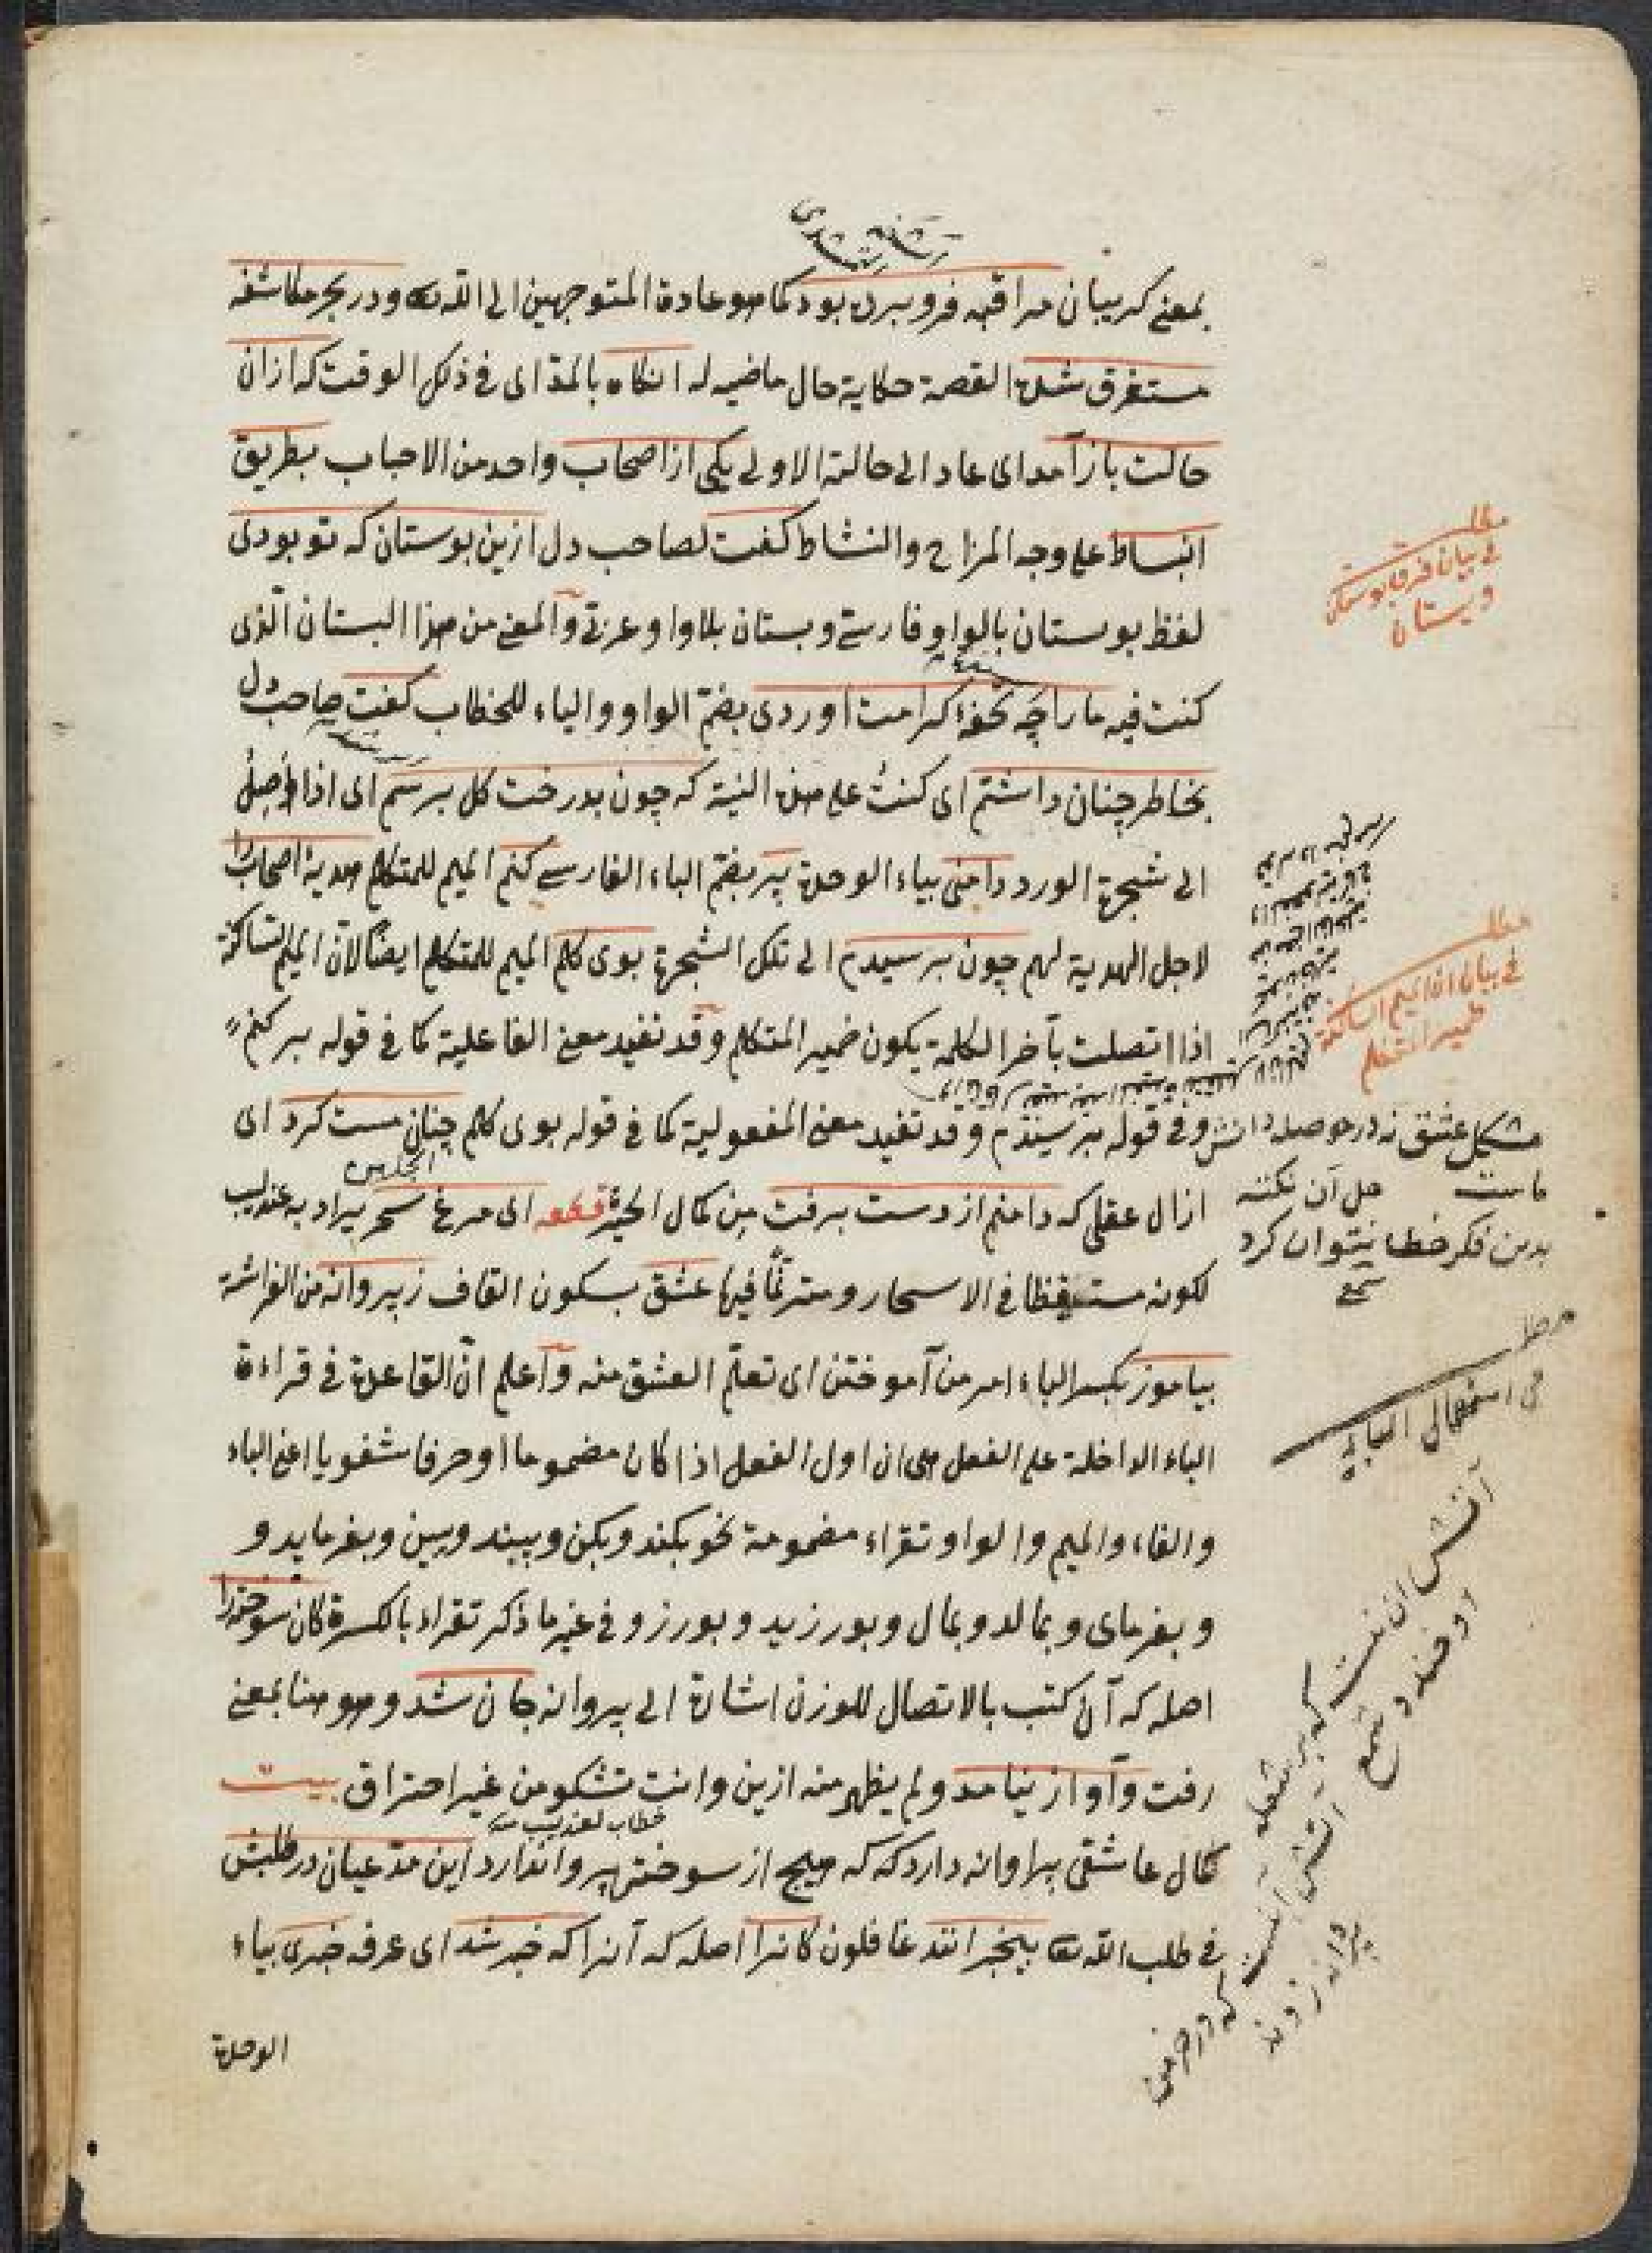 بمعنی کریبان مراقبه فرو برده بود کما هو عادة المتوجهین الی الله تعه و در بحر مکاشفه
مستغرق شده القصة حکایة حال ماضیه له انکاه بالمد ای فی ذلک الوقت که از ان
حالت باز آمد ای عاد الی حالته الاولی یکی از اصحاب واحد من الاحباب بطریق
انبساط علی وجه المزاح والنشاط کفت لصاحب دل ازین بوستان که تو بودی
لفظ بوستان بالواو فارسی و بستان بلا واو عربی والمعنی من هذا البستان الذی
کنت فیه ما را چه تحفه کرامت اوردی بضم الواو والیاء للخطاب کفت صاحب دل
بخاطر چنان داشتم ای کنت علی هذه النیة که چون بدرخت کل برسم ای اذا اصل
الی شجرة الورد دامنی بیاء الوحدة پر بضم الباء الفارسی کنم المیم للمتکلم هدیه اصحاب را
لاجل الهدیة لهم چون برسیدم الی تلک الشجرة بوی کلم المیم للمتکلم ایضا لان المیم الساکنة
اذا اتصلت بآخر الکلمة یکون ضمیر المتکلم وقد تفید معنی الفاعلیة کما فی قوله بر کنم
وفی قوله برسیدم وقد تفید معنی المفعولیة کما فی قوله بوی کلم چنان مست کرد ای
ازال عقلی که دامنم از دست برفت من کمال الحیرة قطعه ای مرغ سحر یراد به عندلیب
لکونه مستیقظا فی الاسحار ومترنما فیها عشق بسکون القاف ز پروانه من الفراشة
بیاموز بکسر الباء امر من آموختن ای تعلم العشق منه واعلم ان القاعدة فی قراءة
الباء الداخلة علی الفعل هی ان اول الفعل اذا کان مضموما او حرفا شفویا اعنی الباء
والفاء والمیم والواو تقراء مضمومة نحو بکند وبکن وببیند وببین وبفرماید و
وبفرمای وبمالد وبمال وبورزید وبورز وفی غیر ما ذکر تقراء بالکسرة کان سوخته را
اصله که آن کتب بالاتصال للوزن اشارة الی پروانه جان شد وهو هنا بمعنی
رفت وآواز نیامد ولم یظهر منه ازین وانت تشکو من غیر احتراق بیت
خطاب لعندلیب
کمال عاشقی پروانه دارد که هیچ از سوختن پروا ندارد این مدعیان در طلبش
فی طلب الله تعه بیخبرانند غافلون کانرا اصله که آنرا که خبر شد ای عرفه خبری بیاء
الوحدة
مطلب
فی بیان فرق بوستان
وبستان
مطلب
فی بیان ان المیم الساکنة
ضمیر المتکلم
مشکل عشق نه در حوصله دانش
ماست حل آن نکته
بدین فکر خطا نتوان کرد
مطلب
فی استعمال الباء
آتش آن نیست که بر شعله
او خندد شمع
آتش آنست که در خرمن
پروانه زدند